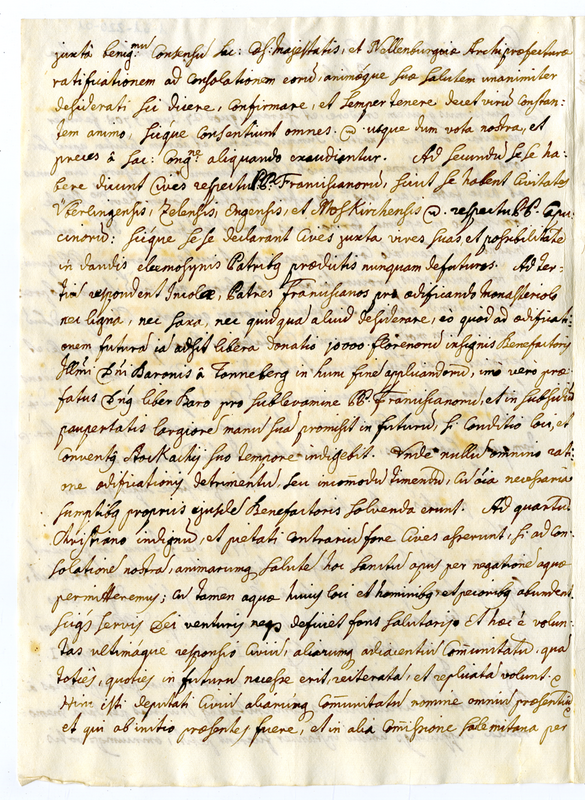 juxtà benig:mū Consensū Sac: Cæs: Majestatis, et Nellenburgicæ Archipræfecturæ
ratificationem ad Consolationem eorū, animæque suæ salutem unanimiter
desiderati sui dicere, Confirmare, et semper tenere decet virū Constan-
tem animo, sicque Consentiunt omnes. & usque dum vota nostra, et
preces à Sac: Congne aliquando exaudiantur. Ad secundū se se ha-
bere dicunt Cives respectu PP. Franciscanorū, sicut se habent Civitates
Überlingensis, Zelensis, Engensis, et Moskirchensis &. respectu PP. Capu-
cinorū: sicque se se declarant Cives juxta vires suas, et possibilitatē
in dandis eleemosynis Patribq prædictis nunquam defuturos. Ad ter-
tiū respondent Incolæ, Patres Franciscanos pro ædificando Monasteriolo
nec ligna, nec saxa, nec quidquā aliud desiderare, eo quod ad ædificati-
onem futurā iā adsit libera donatio 10000 florenorū insignis Benefactoris
Illmi Dni Baronis à Tanneberg in hunc finē applicandorū, imo vero præ-
fatus Dnq liber Baro pro sublevamine PP. Franciscanorū, et in subsidiū
paupertatis largiore manu sua promisit in futurū, si Conditio loci, et
Conventq Stockachij suo tempore indigebit. Unde nullū omnino rati-
one ædificationis detrimentū, seu incōmodū timendū, cū oīa necessaria
sumptibq proprijs ejusdē Benefactoris solvenda erunt. Ad quartū
Christiano indignū, et pietati contrariū fore Cives asserunt, si ad Con-
solationē nostrā, animarumq salutē hoc sanctū opus per negationē aquæ
permitteremus; cū tamen aquæ huius loci et hominibq et pecoribq abundent
sicq servis Dei venturis neqs deficiet fons salutaris. Et hæc ē volun-
tas ultimaque responsio Civiū, aliarumq adiacentiū Cōmunitatū, quā
toties, quoties in futurū necesse erit, reiteratā, et replicatā volunt. &
Hinc isti deputati Civiū aliarumq Cōmunitatū nomine omniū præsentiū
et qui ab initio præsentes fuere, et in alia Cōmissione Salemitana per